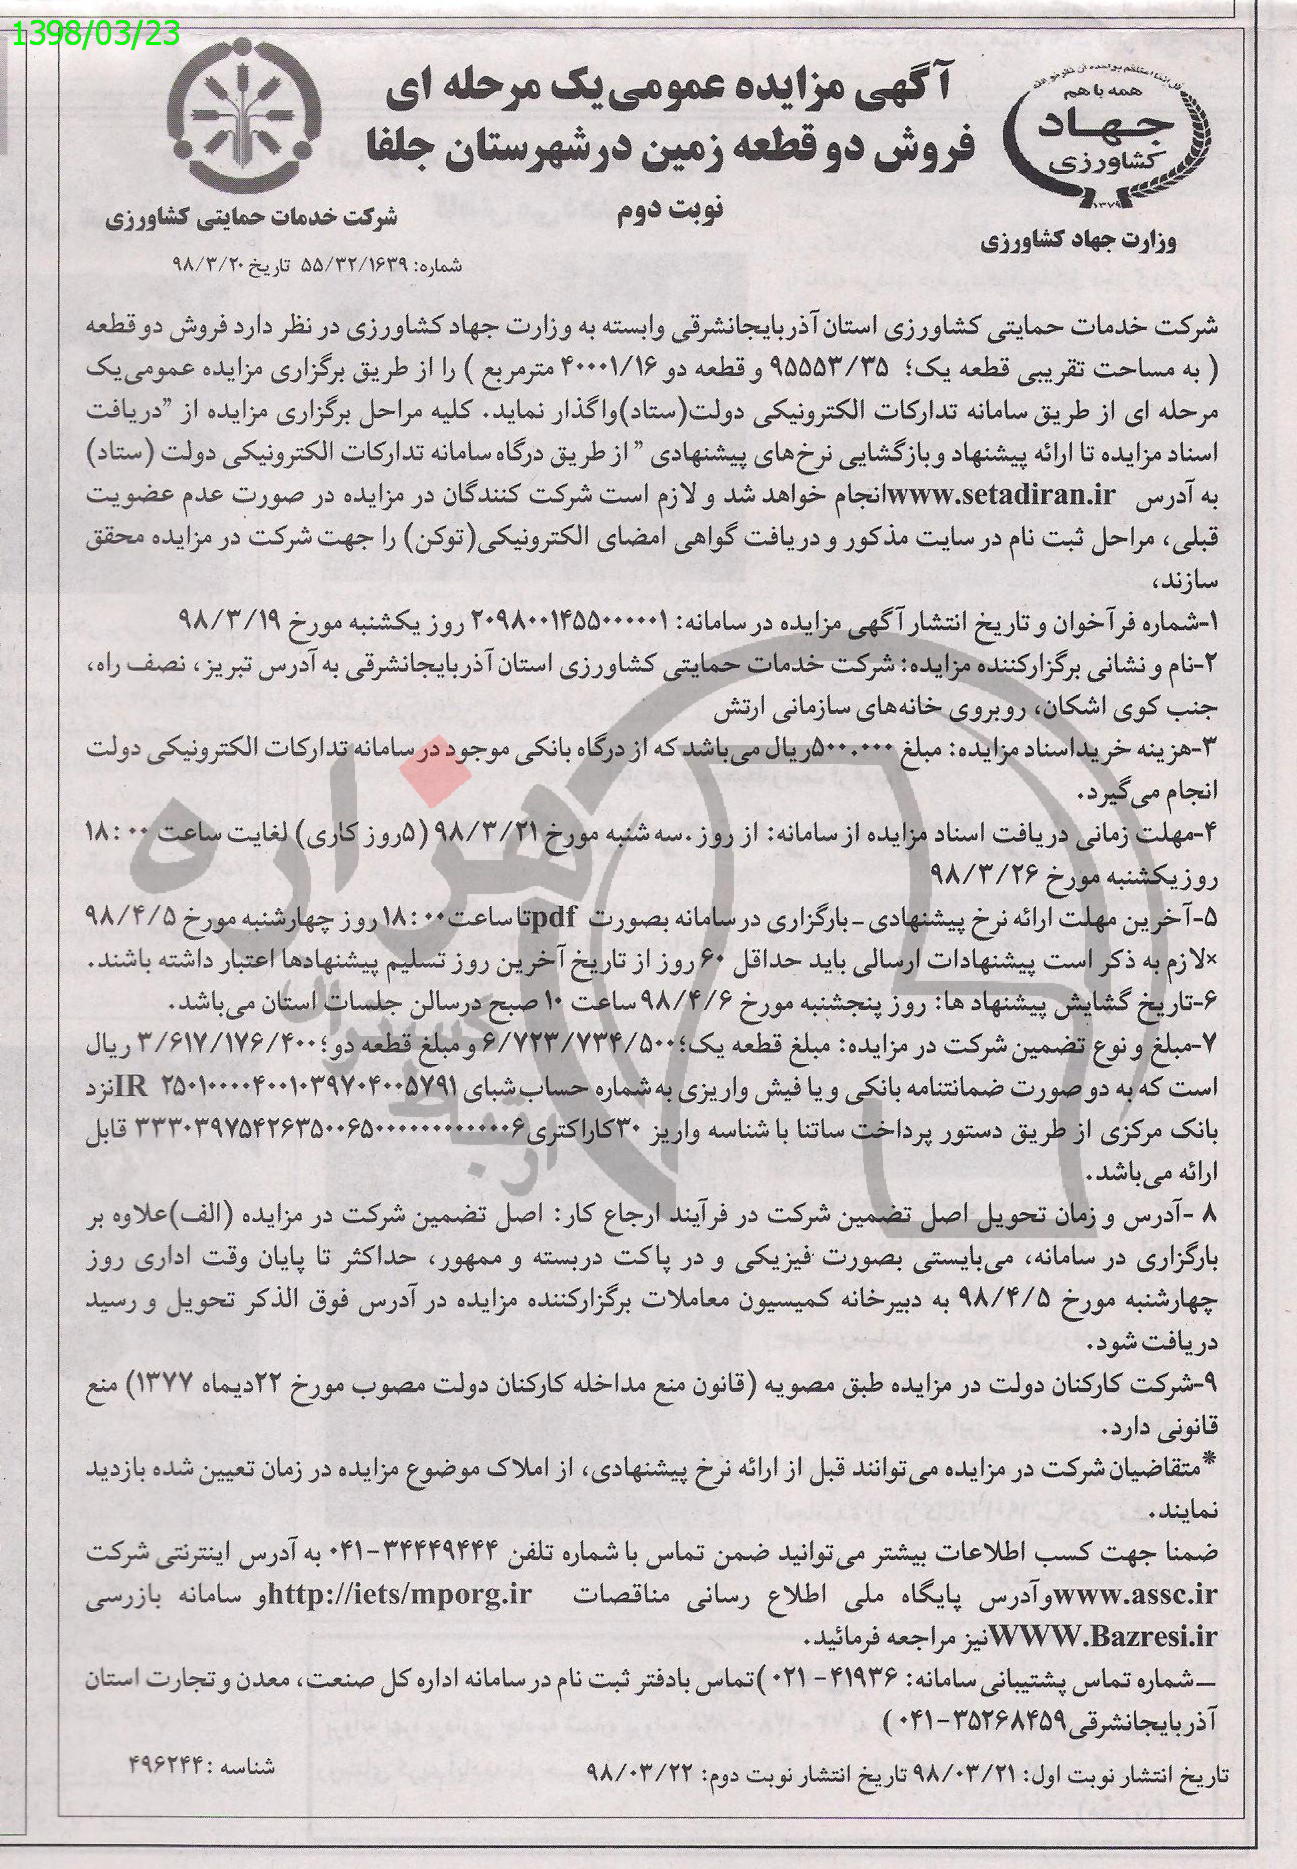 1398/03/23
همه با هم
جهاد
کشاورزی
۱۳۷۹
وزارت جهاد کشاورزی
آگهی مزایده عمومی یک مرحله ای
فروش دو قطعه زمین در شهرستان جلفا
نوبت دوم
شرکت خدمات حمایتی کشاورزی
شماره: ۵۵/۳۲/۱۶۳۹ تاریخ ۹۸/۳/۲۰
شرکت خدمات حمایتی کشاورزی استان آذربایجانشرقی وابسته به وزارت جهاد کشاورزی در نظر دارد فروش دو قطعه
( به مساحت تقریبی قطعه یک؛ ۹۵۵۵۳/۳۵ و قطعه دو ۴۰۰۰۱/۱۶ مترمربع ) را از طریق برگزاری مزایده عمومی یک
مرحله ای از طریق سامانه تدارکات الکترونیکی دولت(ستاد)واگذار نماید. کلیه مراحل برگزاری مزایده از ”دریافت
اسناد مزایده تا ارائه پیشنهاد وبازگشایی نرخ‌های پیشنهادی ” از طریق درگاه سامانه تدارکات الکترونیکی دولت (ستاد)
به آدرس www.setadiran.irانجام خواهد شد و لازم است شرکت کنندگان در مزایده در صورت عدم عضویت
قبلی، مراحل ثبت نام در سایت مذکور و دریافت گواهی امضای الکترونیکی(توکن) را جهت شرکت در مزایده محقق
سازند،
۱-شماره فرآخوان و تاریخ انتشار آگهی مزایده در سامانه: ۲۰۹۸۰۰۱۴۵۵۰۰۰۰۰۱ روز یکشنبه مورخ ۹۸/۳/۱۹
۲-نام و نشانی برگزارکننده مزایده: شرکت خدمات حمایتی کشاورزی استان آذربایجانشرقی به آدرس تبریز، نصف راه،
جنب کوی اشکان، روبروی خانه‌های سازمانی ارتش
۳-هزینه خریداسناد مزایده: مبلغ ۵۰۰.۰۰۰ریال می‌باشد که از درگاه بانکی موجود در سامانه تدارکات الکترونیکی دولت
انجام می‌گیرد.
۴-مهلت زمانی دریافت اسناد مزایده از سامانه: از روز .سه شنبه مورخ ۹۸/۳/۲۱ (۵روز کاری) لغایت ساعت ۱۸:۰۰
روز یکشنبه مورخ ۹۸/۳/۲۶
۵-آخرین مهلت ارائه نرخ پیشنهادی - بارگزاری در سامانه بصورت pdfتا ساعت ۱۸:۰۰ روز چهارشنبه مورخ ۹۸/۴/۵
×لازم به ذکر است پیشنهادات ارسالی باید حداقل ۶۰ روز از تاریخ آخرین روز تسلیم پیشنهادها اعتبار داشته باشند.
۶-تاریخ گشایش پیشنهاد ها: روز پنجشنبه مورخ ۹۸/۴/۶ ساعت ۱۰ صبح درسالن جلسات استان می‌باشد.
۷-مبلغ و نوع تضمین شرکت در مزایده: مبلغ قطعه یک؛۶/۷۲۳/۷۳۴/۵۰۰ و مبلغ قطعه دو؛۳/۶۱۷/۱۷۶/۴۰۰ ریال
است که به دو صورت ضمانتنامه بانکی و یا فیش واریزی به شماره حساب شبای IR ۲۵۰۱۰۰۰۰۴۰۰۱۰۳۹۷۰۴۰۰۵۷۹۱نزد
بانک مرکزی از طریق دستور پرداخت ساتنا با شناسه واریز ۳۰کاراکتری قابل
ارائه می‌باشد.
۸ -آدرس و زمان تحویل اصل تضمین شرکت در فرآیند ارجاع کار: اصل تضمین شرکت در مزایده (الف)علاوه بر
بارگزاری در سامانه، می‌بایستی بصورت فیزیکی و در پاکت دربسته و ممهور، حداکثر تا پایان وقت اداری روز
چهارشنبه مورخ ۹۸/۴/۵ به دبیرخانه کمیسیون معاملات برگزارکننده مزایده در آدرس فوق الذکر تحویل و رسید
دریافت شود.
۹-شرکت کارکنان دولت در مزایده طبق مصوبه (قانون منع مداخله کارکنان دولت مصوب مورخ ۲۲دیماه ۱۳۷۷) منع
قانونی دارد.
*متقاضیان شرکت در مزایده می‌توانند قبل از ارائه نرخ پیشنهادی، از املاک موضوع مزایده در زمان تعیین شده بازدید
نمایند.
ضمنا جهت کسب اطلاعات بیشتر می‌توانید ضمن تماس با شماره تلفن ۳۴۴۴۹۴۴۴-۰۴۱ به آدرس اینترنتی شرکت
www.assc.irوآدرس پایگاه ملی اطلاع رسانی مناقصات http://iets/mporg.irو سامانه بازرسی
WWW.Bazresi.irنیز مراجعه فرمائید.
ــ شماره تماس پشتیبانی سامانه: ۴۱۹۳۶- ۰۲۱ )تماس بادفتر ثبت نام در سامانه اداره کل صنعت، معدن و تجارت استان
آذربایجانشرقی ۳۵۲۶۸۴۵۹-۰۴۱ )
تاریخ انتشار نوبت اول: ۹۸/۰۳/۲۱ تاریخ انتشار نوبت دوم: ۹۸/۰۳/۲۲
شناسه : ۴۹۶۲۴۴
هزاره